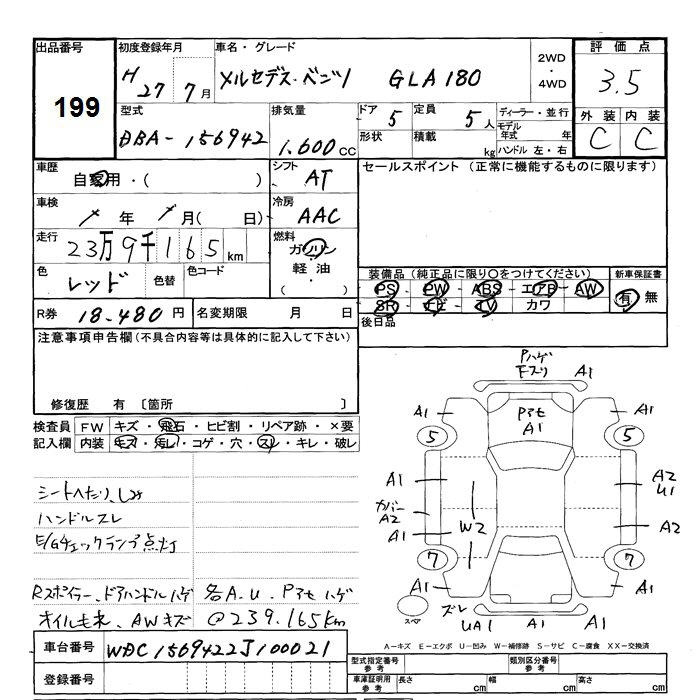 出品番号
199
初度登録年月
H 27年 7月
車名・グレード
メルセデス・ベンツ GLA180
2WD
・
4WD
評価点
3.5
外装 内装
C C
型式
DBA-156942
排気量
1.600cc
ドア 5
定員 5人
形状
積載 kg
ディーラー・並行
モデル年式 年
ハンドル 左・右
車歴
自家用・( )
シフト
AT
セールスポイント (正常に機能するものに限ります)
車検
年 月( 日)
冷房
AAC
走行
23万9千165km
燃料
ガソリン
軽油
( ・ )
色
レッド
色替
色コード
装備品 (純正品に限り○をつけてください)
新車保証書
PS・PW・ABS・エアB・AW
SR・ナビ・TV カワ
有 無
R券 18.480円
名変期限 月 日
後日品
注意事項申告欄(不具合内容等は具体的に記入して下さい)
修復歴 有 [箇所 ]
検査員記入欄
FW キズ・飛石・ヒビ割・リペア跡・×要
内装 キズ・汚レ・コゲ・穴・スレ・キレ・破レ
シートへたり、しみ
ハンドルスレ
E/Gチェックランプ点灯
Rスポイラー、ドアハンドルハゲ 各A.U.Pアセハゲ
オイルもれ、AWキズ @239.165km
車台番号 WDC1569422J100021
登録番号
Pハゲ
モヅリ A1
A1 Pアセ A1
A1
5 5
A1 A2
U1
カバー
A2 W2 A2
A1
7 7
A1 A1
スペア ズレ
UA1 A1 A1
A-キズ E-エクボ U-凹み W-補修跡 S-サビ C-腐食 XX-交換済
型式指定番号
参考
類別区分番号
参考
車庫証明用
参考
長さ cm 幅 cm 高さ cm